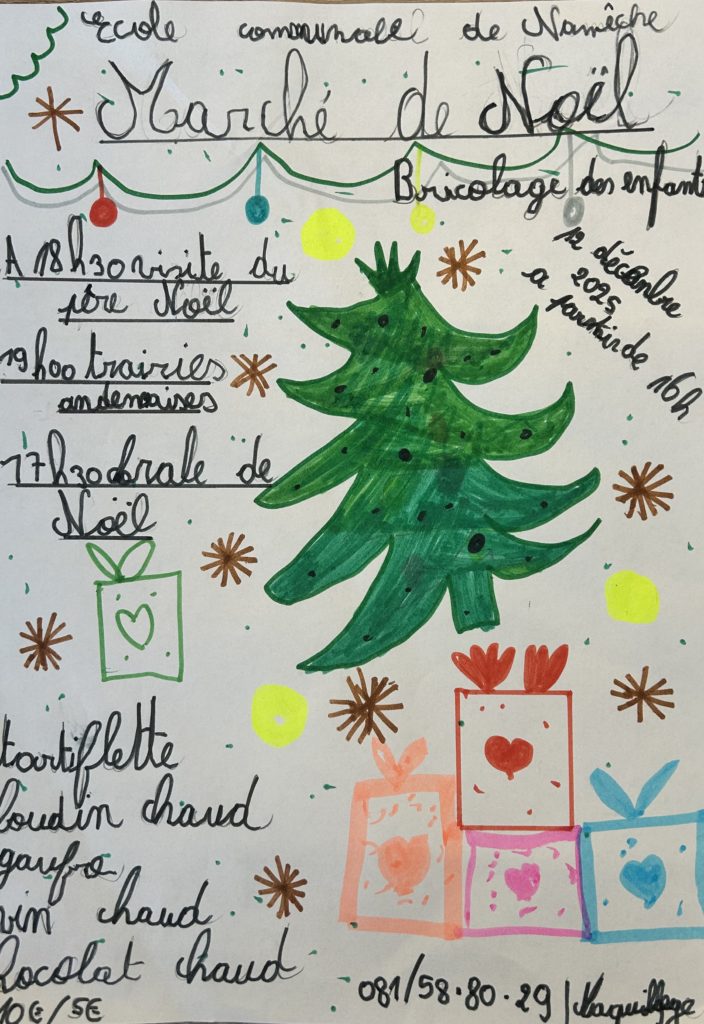 Ecole communale de Namêche
Marché de Noël
Bricolage des enfants
12 décembre
2025
a partir de 16h
A 18h30 visite du
père Noël
19h00 trairies
andennaises
17h30 chorale de
Noël
tartiflette
boudin chaud
gaufre
vin chaud
chocolat chaud
10€/5€
081/58.80.29 | Maquillage